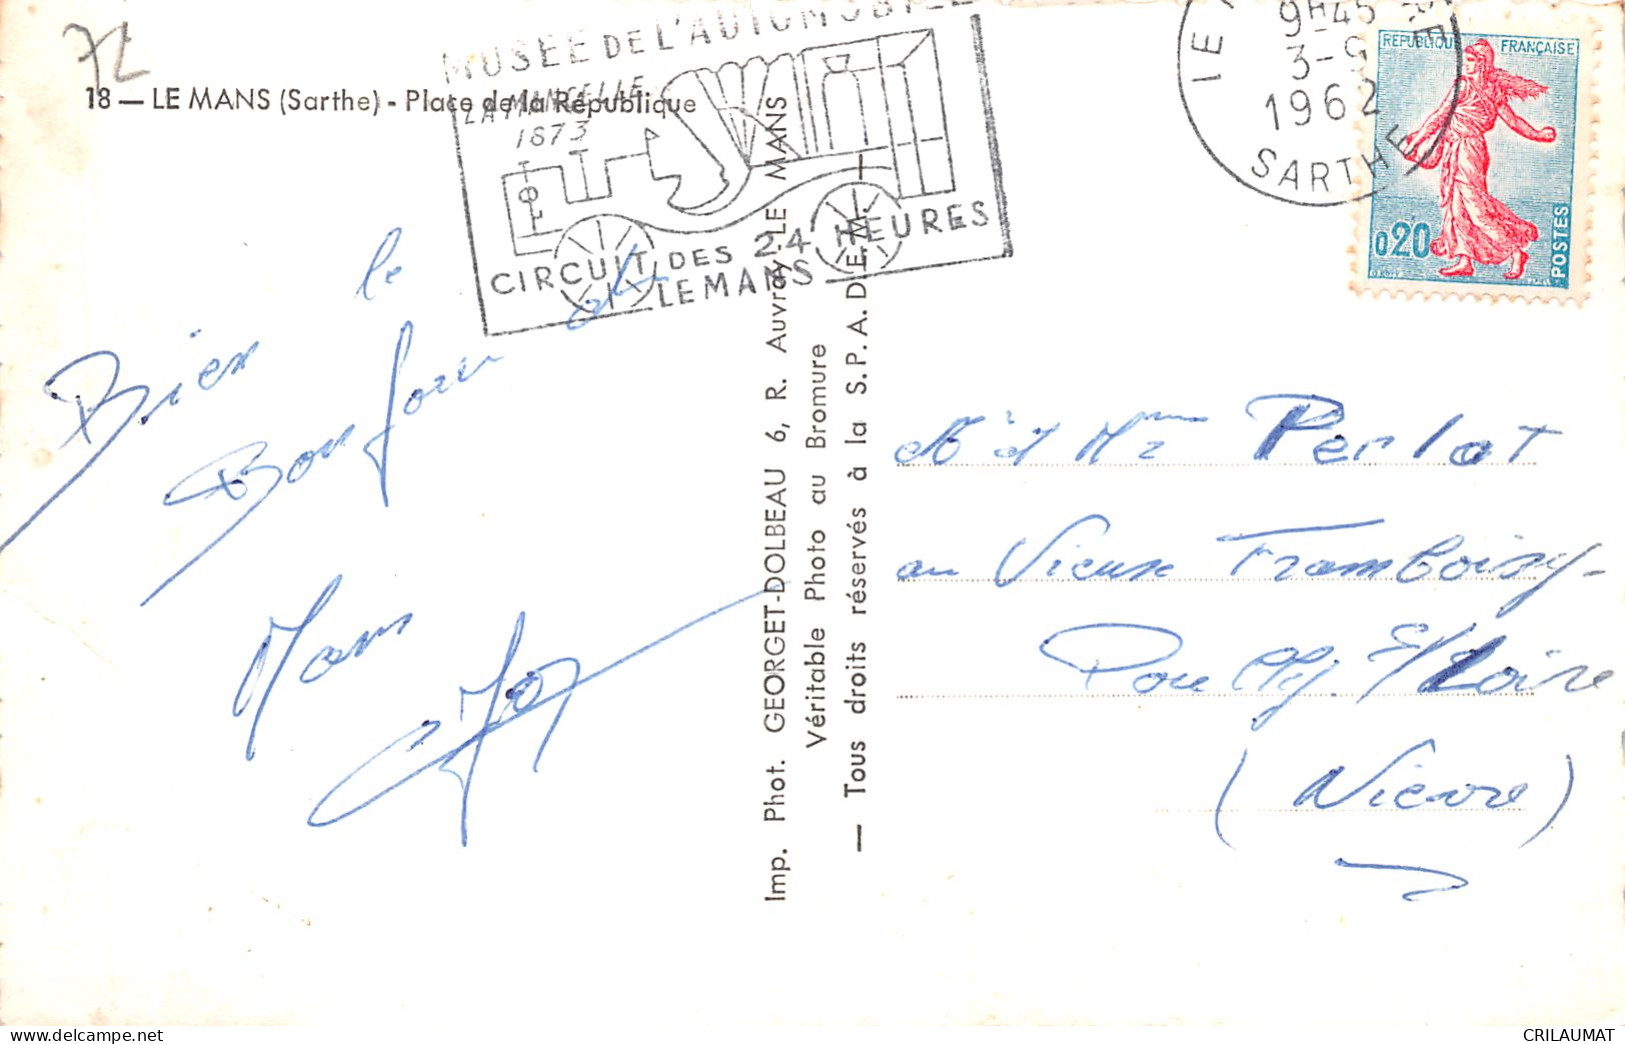 72
18 — LE MANS (Sarthe) - Place de la République
MUSÉE DE L'AUTOMOBILE
LA MANCELLE
1873
CIRCUIT DES 24 HEURES
LE MANS
9H45
3-9
1962
SARTHE
REPUBLIQUE FRANÇAISE
0,20
POSTES
Bien le
Bonjour du
Mans
Imp. Phot. GEORGET-DOLBEAU 6, R. Auvray LE MANS
Véritable Photo au Bromure
— Tous droits réservés à la S. P. A. D. E. M. —
Mr et Mme Perlot
au Vieux Framboisy-
Pouilly s/Loire
(Nièvre)
www.delcampe.net
CRILAUMAT